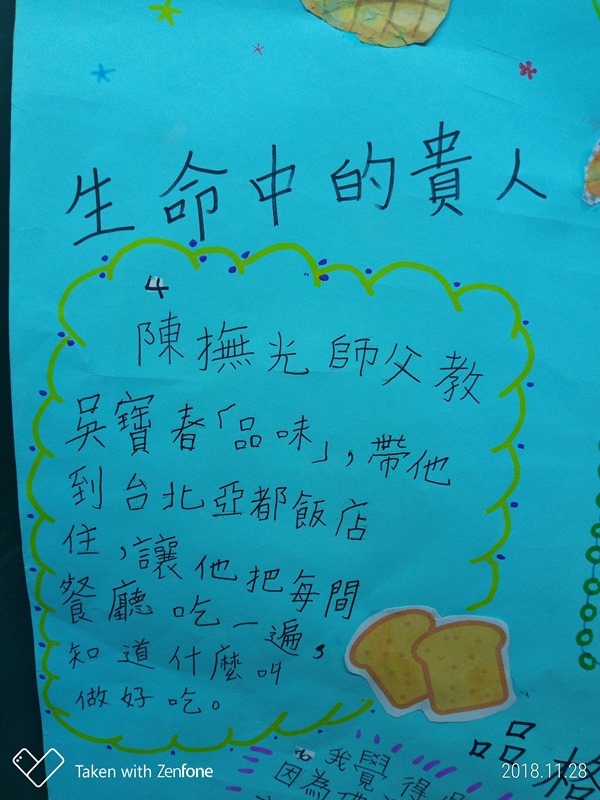 生命中的貴人
4
陳撫光師父教
吳寶春「品味」,帶他
到台北亞都飯店
住,讓他把每間
餐廳吃一遍,
知道什麼叫
做好吃。
品格
我覺得
因為
Taken with Zenfone
2018.11.28